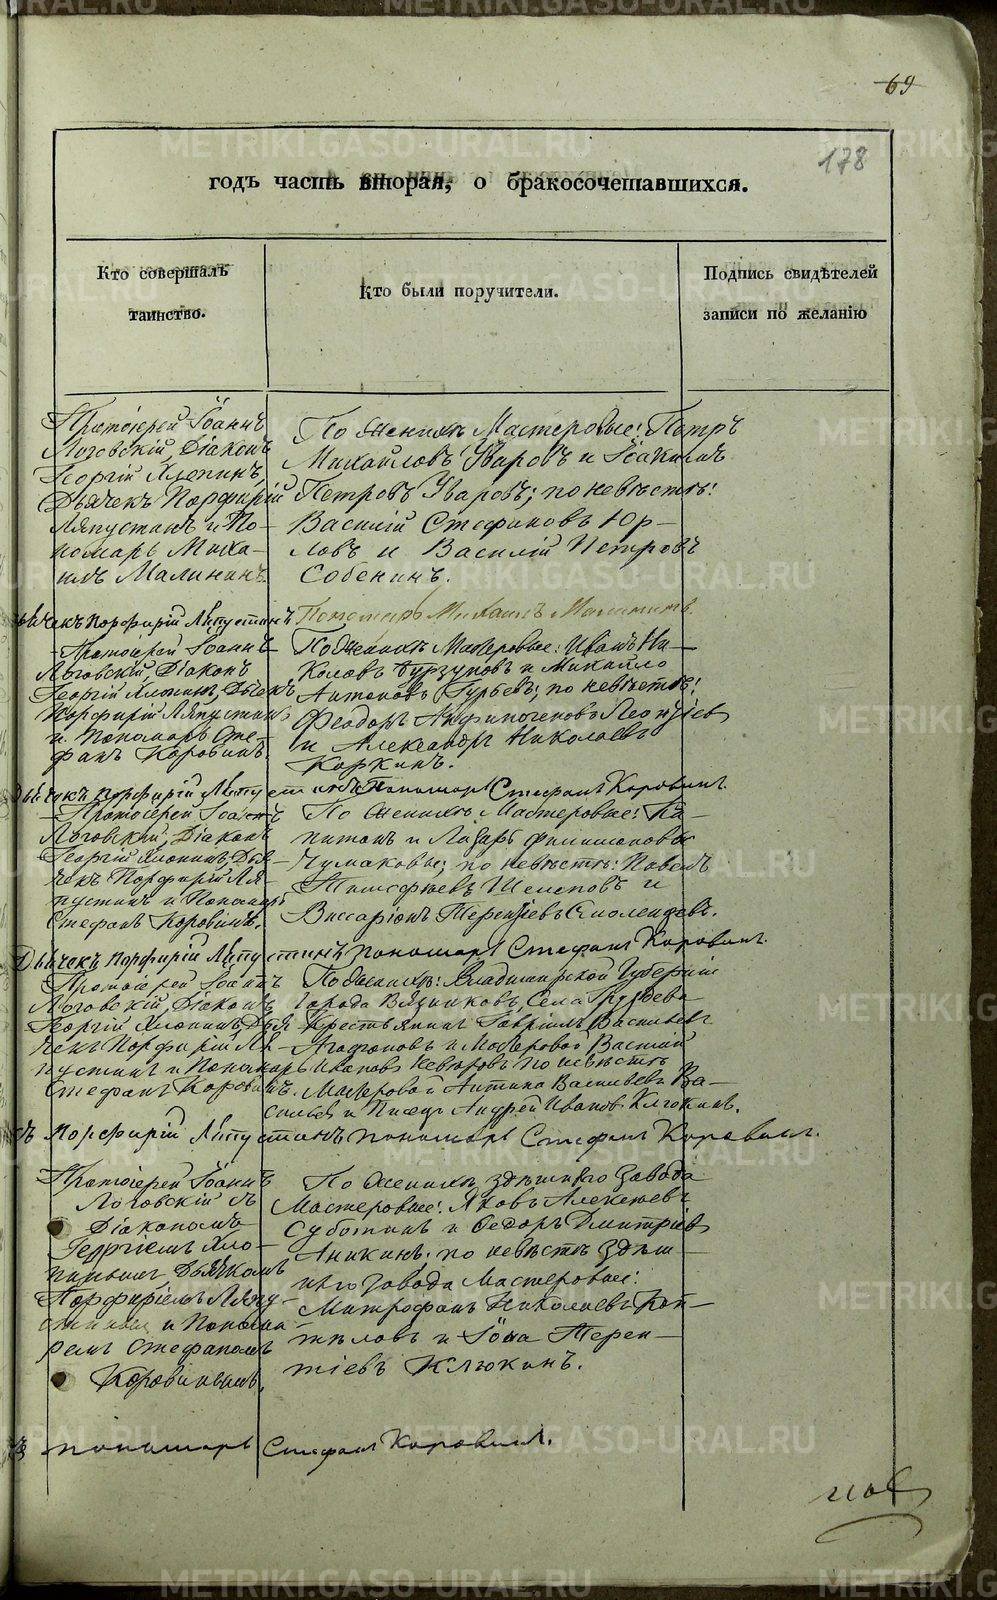 69
178
годъ часть вторая, о бракосочетавшихся.
Кто совершалъ
таинство.
Кто были поручители.
Подпись свидѣтелей
записи по желанію
Протоіерей Іоаннъ
Логовскій, Діаконъ
Георгій Хлопинъ,
Дьячекъ Порфирій
Ляпустинъ и По-
номарь Миха-
илъ Малининъ.
По женихѣ Мастеровые: Петръ
Михайловъ Уваровъ и Іоакимъ
Петровъ Уваровъ; по невѣстѣ:
Василій Стефановъ Юр-
ловъ и Василій Петровъ
Собенинъ.
Дьячекъ Порфирій Ляпустинъ Пономарь Михаилъ Малининъ.
Протоіерей Іоаннъ
Логовскій, Діаконъ
Георгій Хлопинъ, Дьячекъ
Порфирій Ляпустинъ
и Пономарь Сте-
фанъ Коровинъ.
По женихѣ Мастеровые: Иванъ Ни-
колаевъ Бурзуновъ и Михайло
Антоновъ Гурьевъ; по невѣстѣ:
Феодоръ Леонтіевъ
и Александръ Николаевъ
Коркинъ.
Дьячекъ Порфирій Ляпустинъ Пономарь Стефанъ Коровинъ.
Протоіерей Іоаннъ
Логовскій, Діаконъ
Георгій Хлопинъ, Дья-
чекъ Порфирій Ля-
пустинъ и Пономарь
Стефанъ Коровинъ.
По женихѣ Мастеровые: Ка-
питонъ и Лазарь Филимоновы
Чумаковы; по невѣстѣ: Павелъ
Тимофѣевъ Шелеповъ и
Виссаріонъ Терентіевъ Смоленцевъ.
Дьячекъ Порфирій Ляпустинъ Пономарь Стефанъ Коровинъ.
Протоіерей Іоаннъ
Логовскій, Діаконъ
Георгій Хлопинъ, Дья-
чекъ Порфирій Ля-
пустинъ и Пономарь
Стефанъ Коровинъ.
По женихѣ: Владимірской Губерніи
Города Вязниковъ, Села
Крестьянинъ Гавріилъ Васильевъ
Агафоновъ и Мастеровой Василій
Ивановъ по невѣстѣ
Мастеровой Антипа Васильевъ Ва-
сильевъ и Писецъ Андрей Ивановъ Клюкинъ.
Порфирій Ляпустинъ Пономарь Стефанъ Коровинъ.
Протоіерей Іоаннъ
Логовскій съ
Діакономъ
Георгіемъ Хло-
пинымъ, Дьячкомъ
Порфиріемъ Ляпу-
стинымъ и Понома-
ремъ Стефаномъ
Коровинымъ.
По женихѣ здѣшняго завода
Мастеровые: Яковъ Алексѣевъ
Суботинъ и Ѳедоръ Дмитріевъ
Аникинъ; по невѣстѣ здѣш-
няго завода Мастеровые:
Митрофанъ Николаевъ Коп-
тѣловъ и Іона Терен-
тіевъ Клюкинъ.
Пономарь Стефанъ Коровинъ.